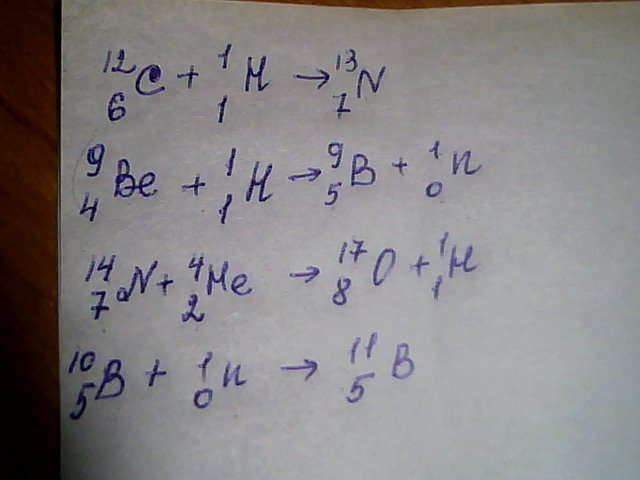 ¹²₆C + ¹₁H → ¹³₇N
⁹₄Be + ¹₁H → ⁹₅B + ¹₀n
¹⁴₇N + ⁴₂He → ¹⁷₈O + ¹₁H
¹⁰₅B + ¹₀n → ¹¹₅B